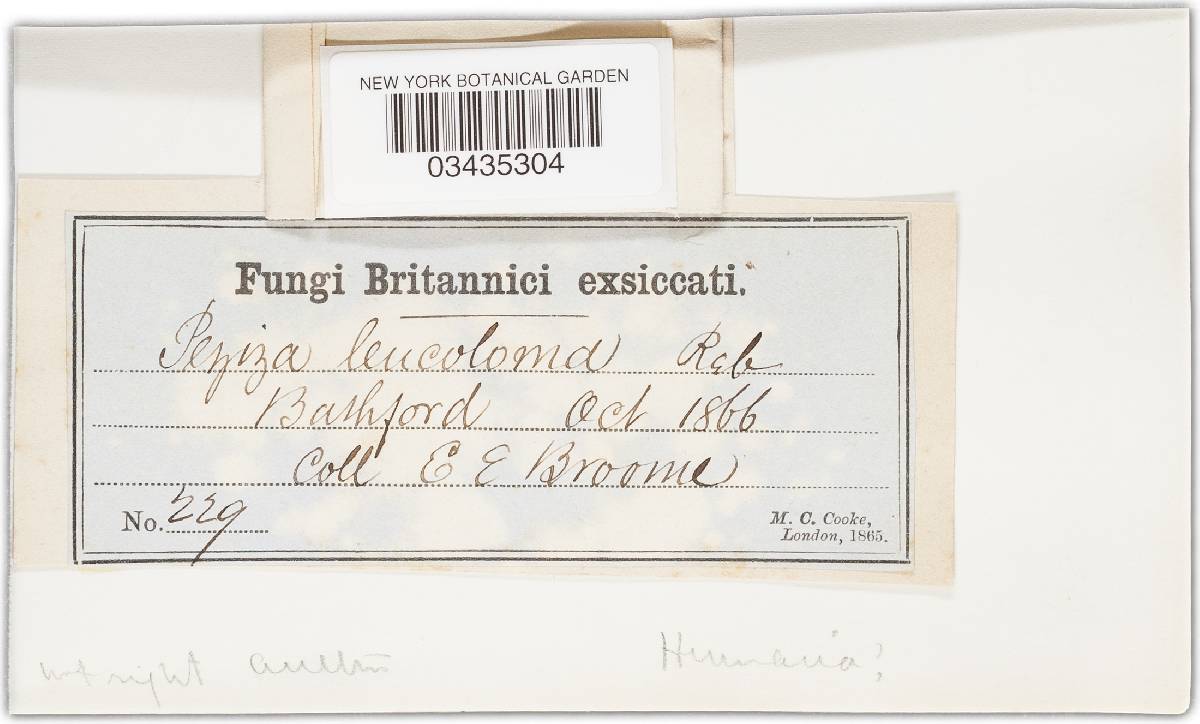 NEW YORK BOTANICAL GARDEN
03435304
Fungi Britannici exsiccati.
Peziza leucoloma Reb
Bathford Oct 1866
Coll E E Broome
No. 229
M. C. Cooke,
London, 1865.
not right
Humaria?